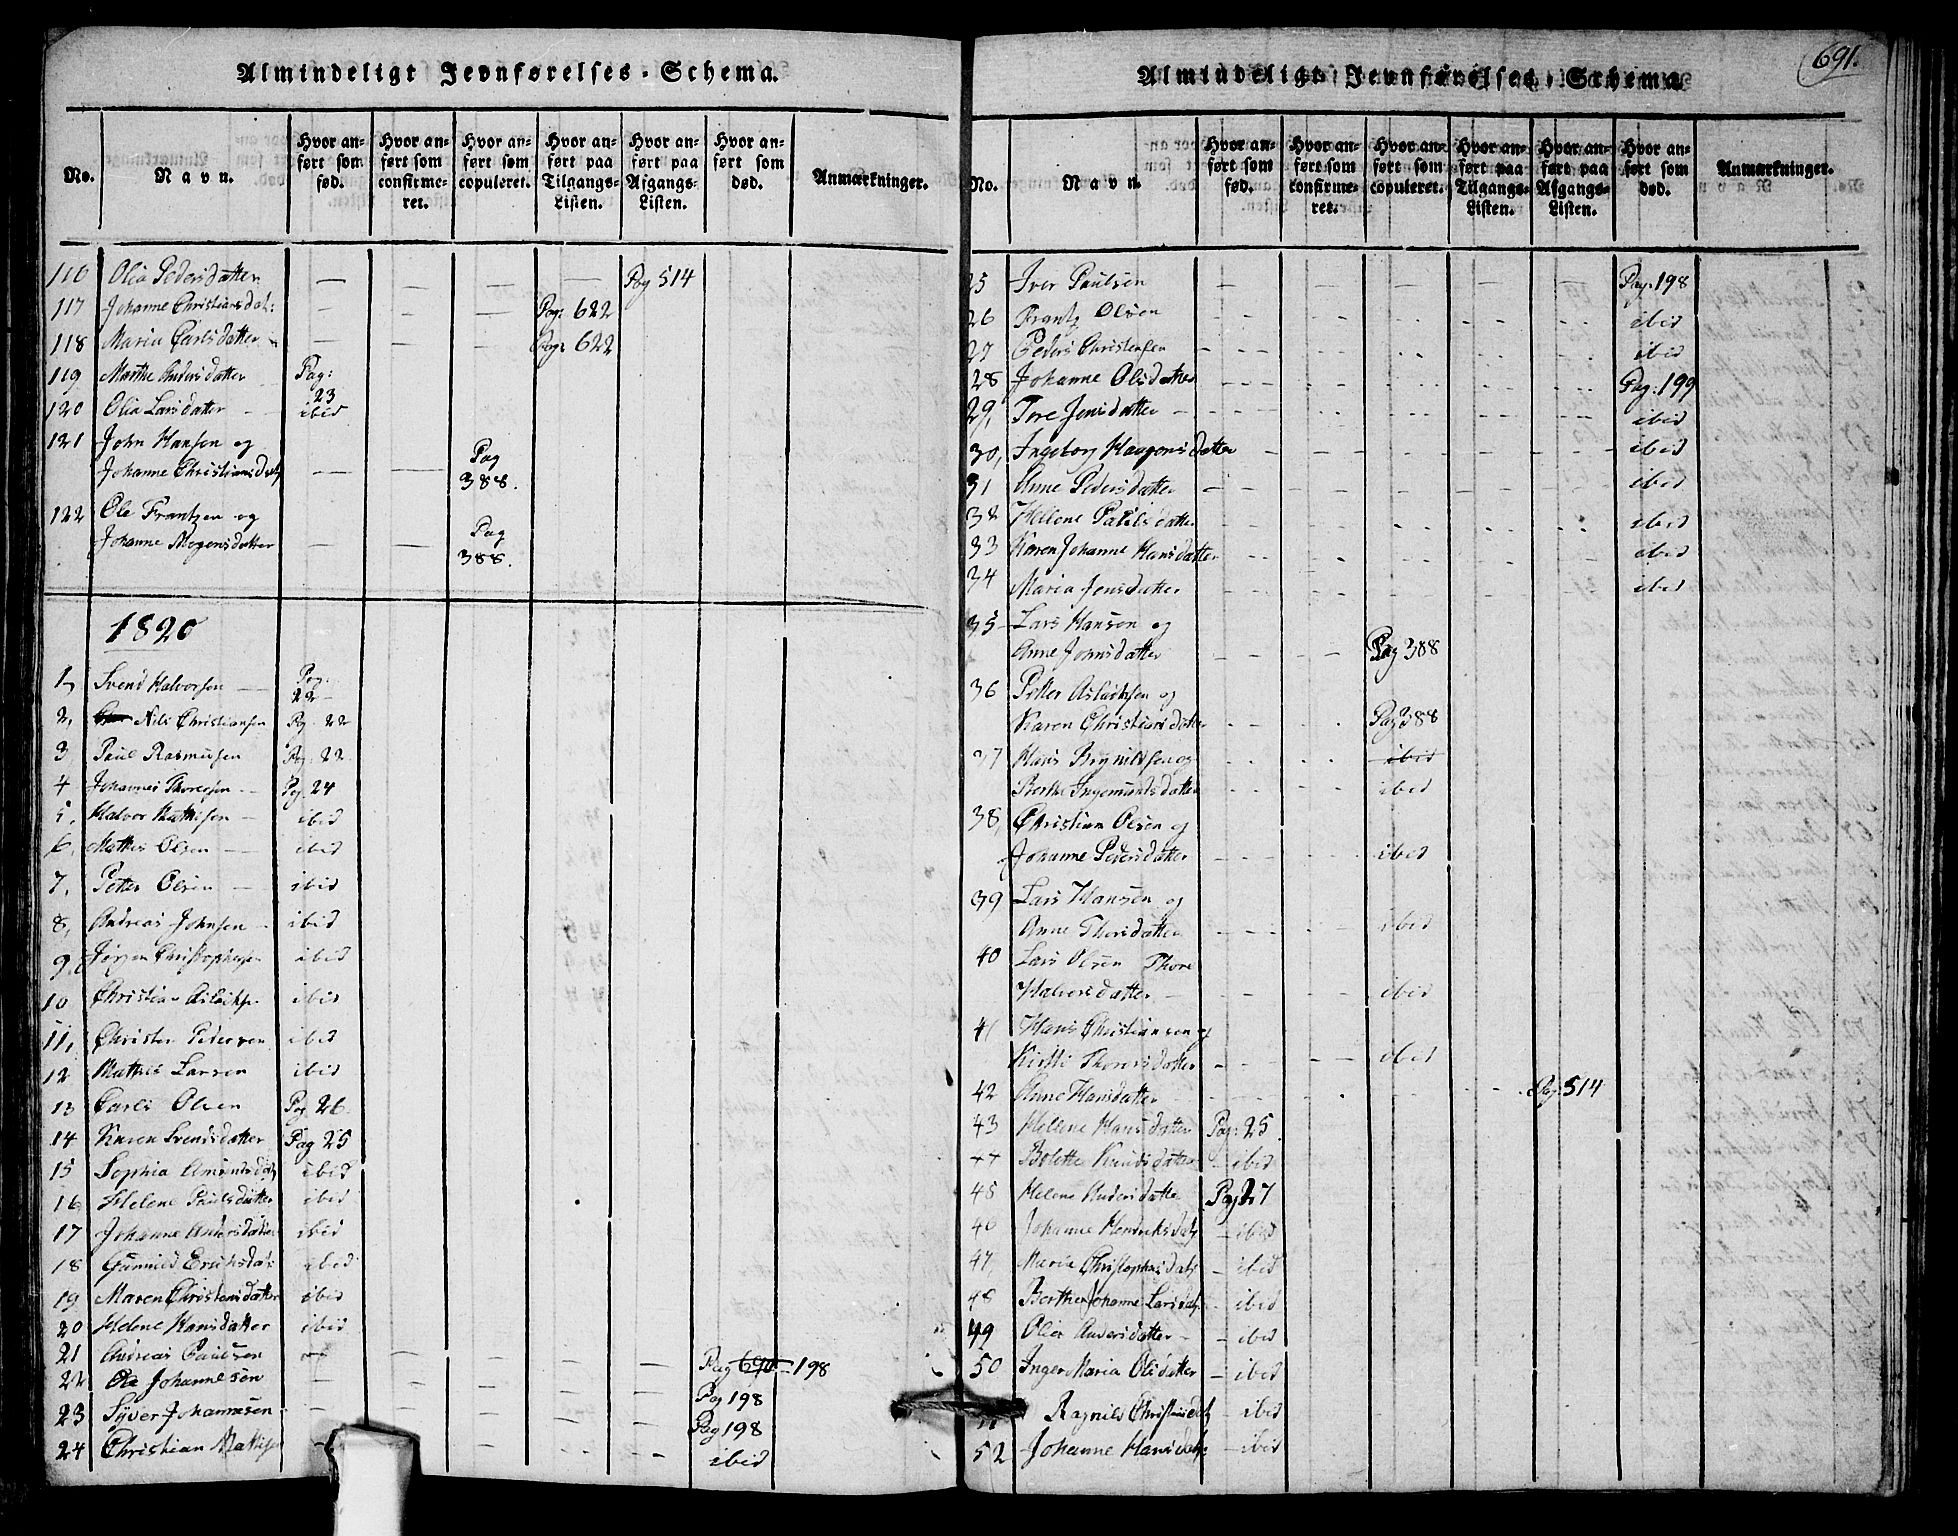 Almindeligt Jevnførelses-Schema.
No. Navn. Hvor anført som fød. Hvor anført som confirmeret. Hvor anført som copuleret. Hvor anført paa Tilgangs-Listen. Hvor anført paa Afgangs-Listen. Hvor anført som død. Anmærkninger.
116 Olia Pedersdatter — — — — Pag 514
117 Johanne Christiansdat: — — — Pag: 622
118 Maria Carlsdatter — — — Pag: 622
119 Marthe Andersdatter Pag: 23
120 Olia Larsdatter — ibid
121 John Hansen og
Johanne Christiansdat — — Pag 388.
122 Ole Frantzen og
Johanne Mogensdatter — — Pag 388.
1820
1, Svend Halvorsen — Pag: 22
2, Nils Christiansen Pag. 22
3 Paul Rasmusen Pag. 22
4 Johannes Thoresen — Pag. 24
5, Halvor Mathisen — ibid
6, Mathis Olsen — ibid
7, Petter Olsen — ibid
8, Andreas Johnsen — ibid
9, Jørgen Christophersen ibid
10 Christian Aslachs. ibid
11, Christen Pedersen ibid
12 Mathis Larsen ibid
13 Carli Olsen Pag 26
14 Karen Svendsdatter Pag 25
15 Sophia Amundsdat ibid
16 Helene Paulsdatter ibid
17 Johanne Andersdatter ibid
18 Gunnild Erichsdat ibid
19 Maren Christensdatter ibid
20 Helene Hansdatter ibid
21 Andreas Paulsen — — — — — Pag 690 198
22 Ole Johannesen — — — — — Pag 198
23 Syver Johannesen — — — — — Pag 198
24 Christian Mathisen — — — — ibid
691.
Almindeligt Jevnførelses-Schema
No. Navn. Hvor anført som fød. Hvor anført som confirmeret. Hvor anført som copuleret. Hvor anført paa Tilgangs-Listen. Hvor anført paa Afgangs-Listen. Hvor anført som død. Anmærkninger.
25 Iver Paulsen — — — — — Pag. 198
26 Frantz Olsen — — — — — ibid
27 Peders Christensen — — — — — ibid
28 Johanne Olsdatter — — — — — Pag. 199
29, Tore Jensdatter — — — — — ibid
30, Ingeborg Haagensdatter — — — — — ibid
31 Anne Pedersdatter — — — — — ibid
32 Hellene Paulsdatter — — — — — ibid
33 Karen Johanne Hansdatter — — — — — ibid
34 Maria Jensdatter — — — — — ibid
35 Lars Hansen og
Anne Johnsdatter — — Pag 388
36 Petter Aslachsen og
Karen Christiansdatter — — Pag 388
37 Hans Brynildsen og ibid
Berthe Ingemundsdatter — — ibid
38, Christian Olsen og
Johanne Pedersdatter — — ibid
39 Lars Hansen og
Anne Thorsdatter — — ibid
40 Lars Olsen Thore
Halvorsdatter — — — ibid
41 Hans Christiansen og
Kirsti Thoresdatter — — ibid
42 Anne Hansdatter — — — — Pag. 514
43 Hellene Hansdatter Pag: 25
44 Bolette Knudsdatter — ibid
45 Helene Andersdatter Pag 27
46 Johanne Hendriksdat — ibid
47, Maria Christophersdat — ibid
48 Berthe Johanne Larsdat — ibid
49 Olia Andersdatter — ibid
50 Inger Maria Olsdatter — ibid
51 Ragnild Christiansdat — ibid
52 Johanne Hansdat — ibid